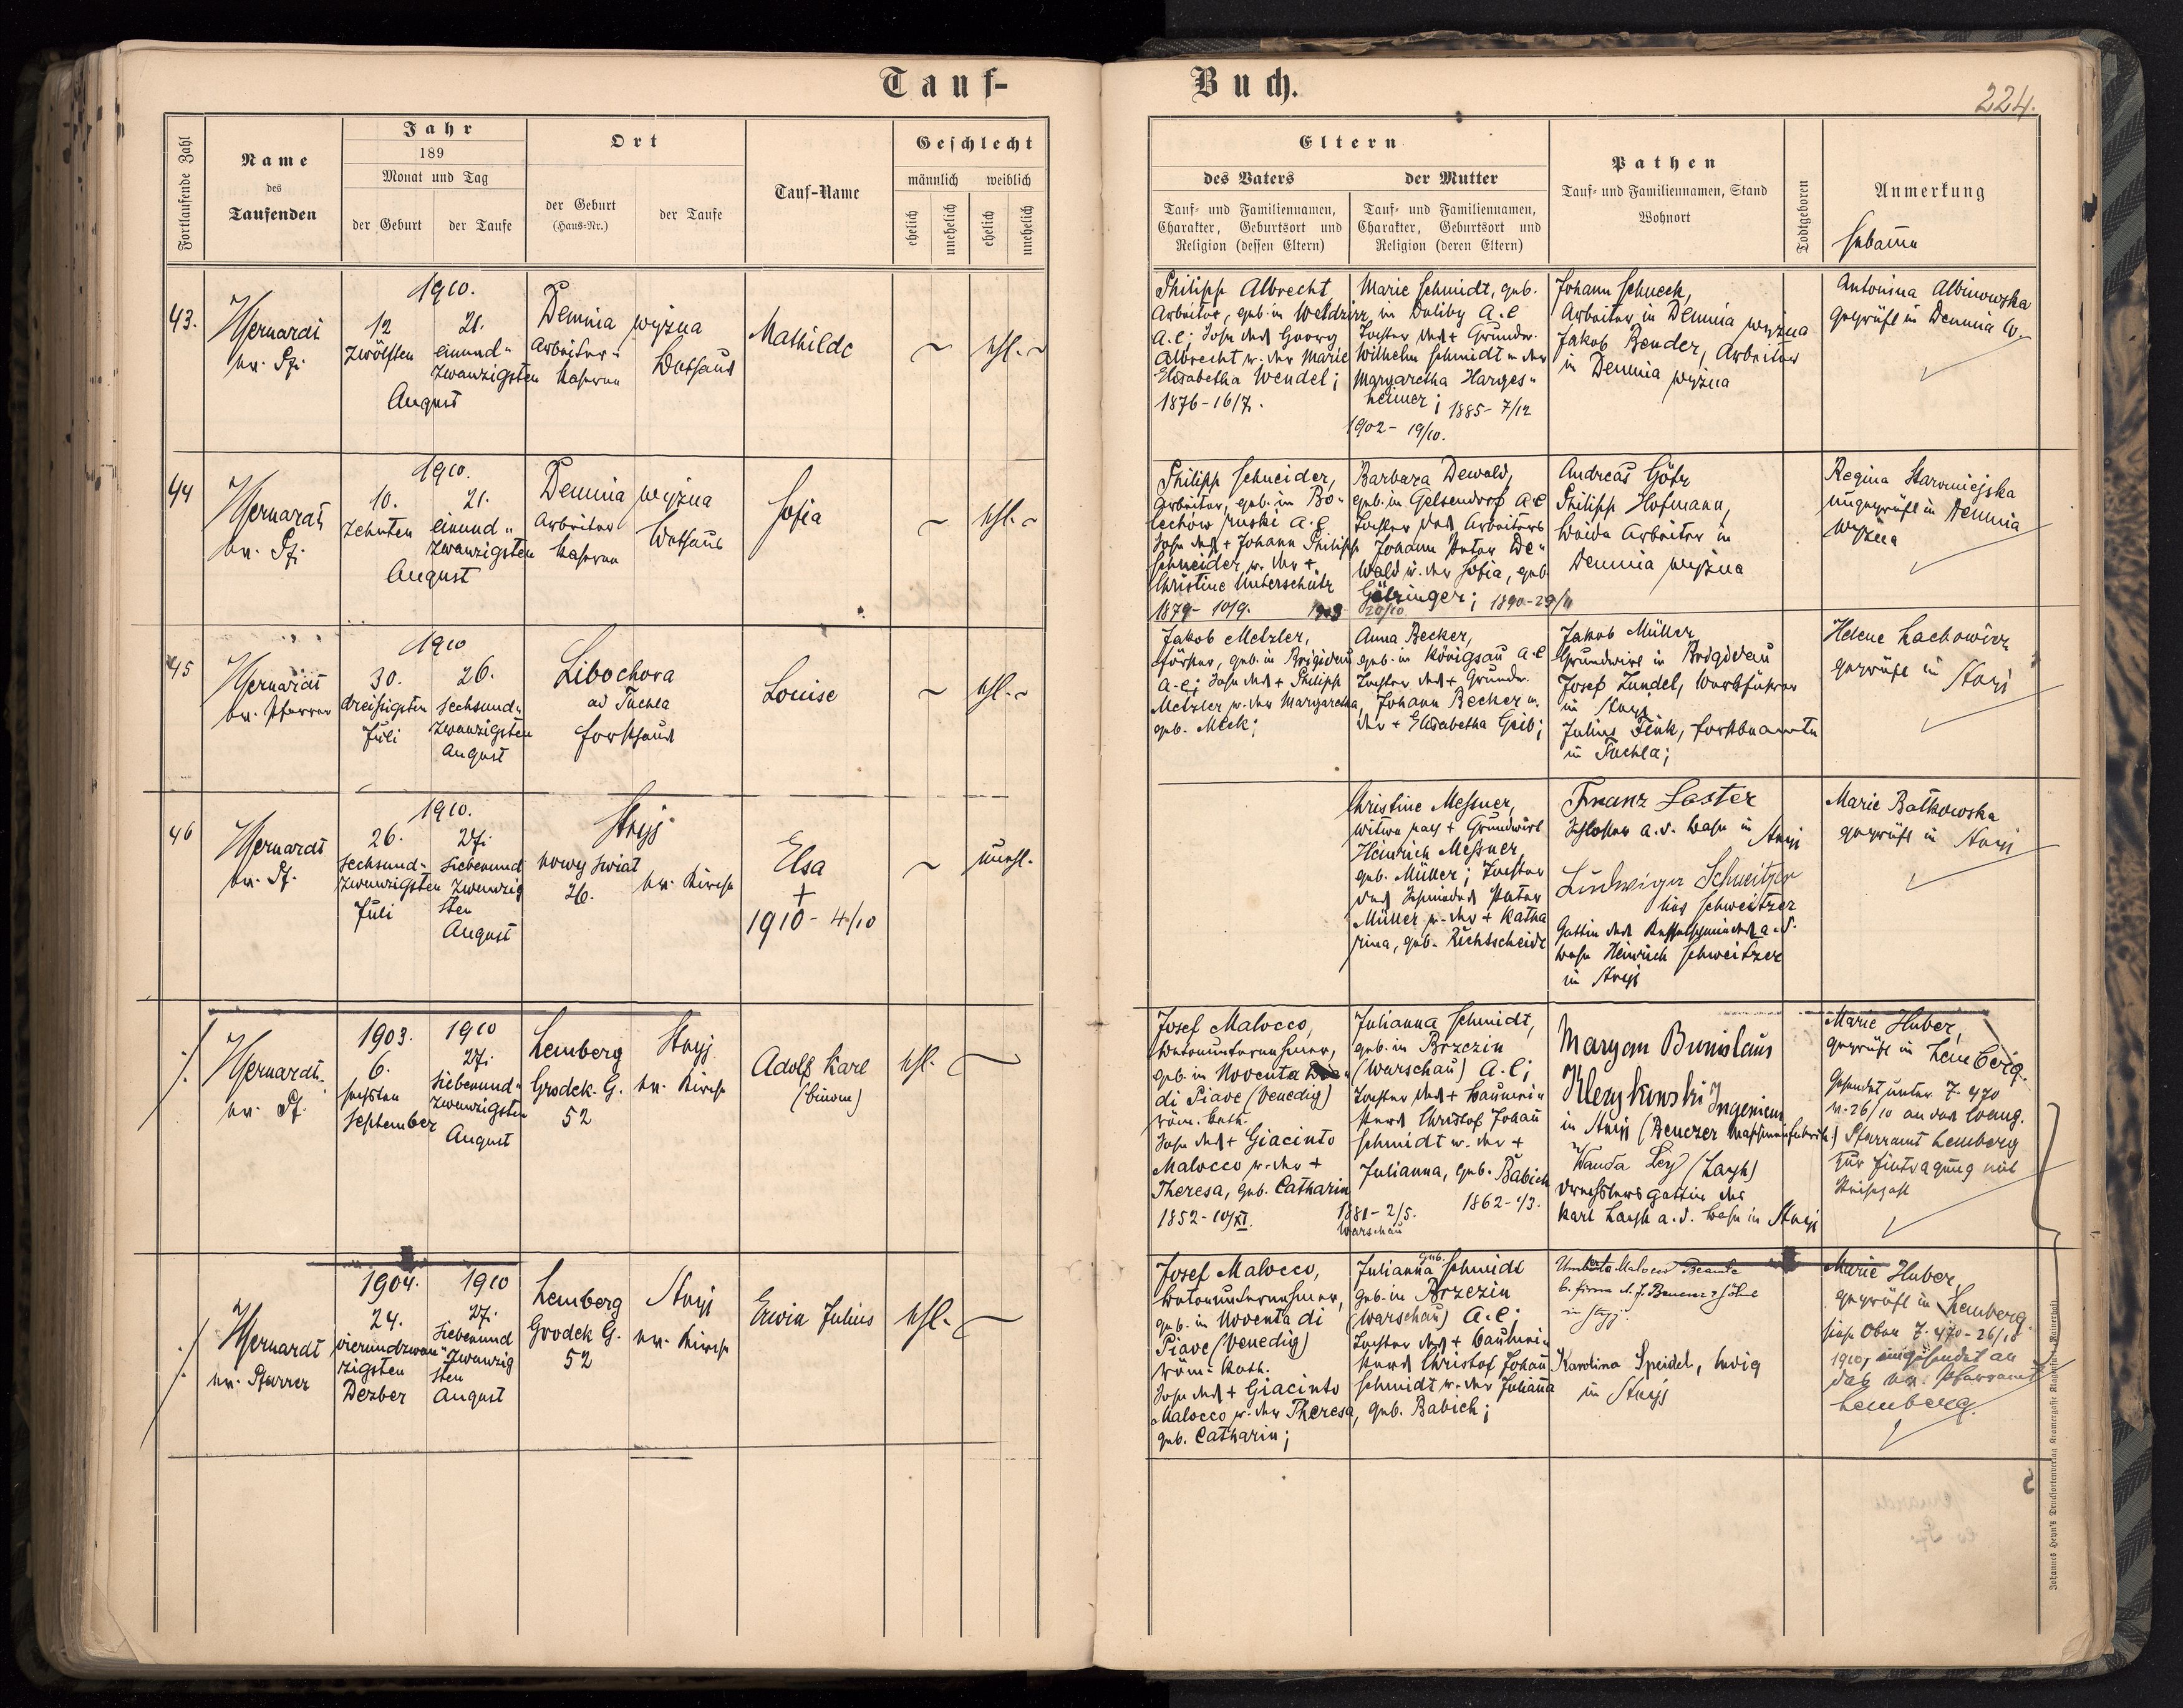 Tauf-
Buch.
224.
Fortlaufende Zahl
Name
des
Taufenden
Jahr
189
Monat und Tag
der Geburt
der Taufe
Ort
der Geburt
(Haus-Nr.)
der Taufe
Tauf-Name
Geschlecht
männlich weiblich
ehelich
unehelich
ehelich
unehelich
Eltern
des Vaters
Tauf- und Familiennamen,
Charakter, Geburtsort und
Religion (dessen Eltern)
der Mutter
Tauf- und Familiennamen,
Charakter, Geburtsort und
Religion (deren Eltern)
Pathen
Tauf- und Familiennamen, Stand
Wohnort
Todtgeboren
Anmerkung
Hebamme
43.
ev. Pf.
1910.
12
zwölften
21.
einund-
zwanzigsten
August
Demnia wyżna
Arbeiter-
kaserne
Bethaus
Mathilde
~
ehl. ~
Philipp Albrecht
Arbeiter, geb. in Weldzirz
A.C; Sohn des Georg
Albrecht u. der Marie
Elisabetha Wendel;
1876-16/7.
Marie Schmidt, geb.
in Doliby A.C
Tochter des + Grundw.
Wilhelm Schmidt u. der
Margaretha Harges-
heimer; 1885-7/12
1902-19/10.
Johann Schneck,
Arbeiter in Demnia wyżna
Jakob Bender, Arbeiter
in Demnia wyżna
Antonina Albinowska
geprüft in Demnia w.
44
ev. Pf.
1910.
10.
zehnten
21.
einund-
zwanzigsten
August
Demnia wyżna
Arbeiter
kaserne
Bethaus
Sofia
~
ehl. ~
Philipp Schneider,
Arbeiter, geb. in Bo-
lechow ruski A.C
Sohn des + Johann Philipp
Schneider u. der +
Christine Unterschütz
1879-10/9.
Barbara Dewald,
geb. in Gelsendorf A.C
Tochter des Arbeiters
Johann Peter De-
wald u. der Sofia, geb.
1890-29/11
20/10
Andreas Götz
Philipp Hofmann,
beide Arbeiter in
Demnia wyżna
Regina Staromiejska
ungeprüft in Demnia
wyżna
45
ev. Pfarrer
1910
30.
dreißigsten
Juli
26.
sechsund-
zwanzigsten
August
Libochora
ad Tuchla
Forsthaus
Louise
~
ehl. ~
Jakob Metzler,
Förster, geb. in Brigidau
A.C; Sohn des + Philipp
Metzler u. der Margaretha,
geb. Meck;
Anna Becker,
geb. in Königsau A.C
Tochter des + Grundw.
Johann Becker u.
der + Elisabetha Geib;
Jakob Müller
Grundwirt in Brigidau
Josef Zundel, Werkführer
in Stryj
Julius Fink, Forstbeamte
in Tuchla;
Helene Lachowicz
geprüft in Stryj
46
ev. Pf.
1910.
26.
sechsund-
zwanzigsten
Juli
27.
siebenund
zwanzig
sten
August
Stryj
nowy swiat
26.
ev. Kirche
Elsa
+
1910-4/10
~
unehl.
Christine Messner,
Witwe nach + Grundwirt
Heinrich Messner
geb. Müller; Tochter
des Schmiedes Peter
Müller u. der + Katha
rina, geb. Richtscheidt
Franz Laster
Schlosser a.d. Bahn in Stryj
Ludwiga Schweitzer
lies Schweitzer
Gattin des Kesselschmiedes a.d.
Bahn Heinrich Schweitzer
in Stryj
Marie Batkowska
geprüft in Stryj
ev. Pf.
1903.
6.
sechsten
September
1910
27.
siebenund-
zwanzigsten
August
Lemberg
Grodek. G.
52
Stryj
ev. Kirche
Adolf Karl
ehl. ~
Josef Malocco,
Betonunternehmer,
geb. in Noventa
di Piave (Venedig)
röm. kath.
Sohn des + Giacinto
Malocco u. der +
Theresa, geb. Catharin
1852-10/XI.
Julianna Schmidt,
geb. in Brzezin
(Warschau) A.C;
Tochter des + Baumei-
sters Christof Johann
Schmidt u. der +
Julianna, geb. Babich
1862-4/3.
1881-2/5.
Warschau
Ingenieur
in Stryj (Benczer Maschinenfabrik.)
Wanda Ley (Laych)
Drechslersgattin des
Karl Laych a.d. Bahn in Stryj
Marie Huber,
geprüft in Lemberg.
Gesendet unter Z. 470
v. 26/10 an das evang.
Pfarramt Lemberg
zur Eintragung mit
ev. Pfarrer
1904.
24.
vierundzwan-
zigsten
Dezber
1910
27.
siebenund
zwanzig
sten
August
Lemberg
Grodek G.
52
Stryj
ev. Kirche
Erwin Julius
ehl. ~
Josef Malocco,
Betonunternehmer,
geb. in Noventa di
Piave (Venedig)
röm. kath.
Sohn des + Giacinto
Malocco u. der Theresa,
geb. Catharin;
Julianna geb. Schmidt
geb. in Brzezin
(Warschau) A.C;
Tochter des + Baumei-
sters Christof Johann
Schmidt u. der Julianna
geb. Babich;
Umberto Malocco Beamte
in Stryj.
Karolina Speidel, ledig
in Stryj
Marie Huber,
geprüft in Lemberg.
siehe oben Z. 470-26/10
1910, eingesendet an
das ev. Pfarramt
Lemberg.